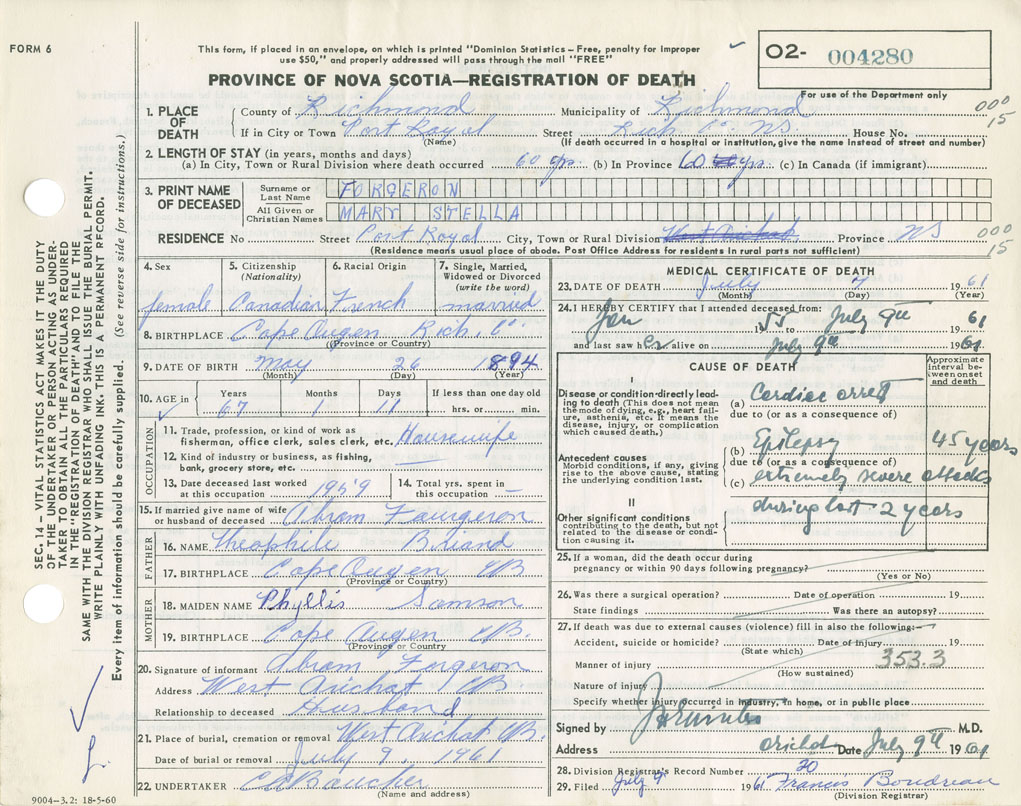 FORM 6
This form, if placed in an envelope, on which is printed "Dominion Statistics – Free, penalty for improper
use $50," and properly addressed will pass through the mail "FREE"
PROVINCE OF NOVA SCOTIA—REGISTRATION OF DEATH
O2- 004280
For use of the Department only
1. PLACE OF DEATH
County of Richmond Municipality of Richmond
000
15
If in City or Town Port Royal Street Rich. Co. NS. House No.
(Name) (If death occurred in a hospital or institution, give the name instead of street and number)
2. LENGTH OF STAY (in years, months and days)
(a) In City, Town or Rural Division where death occurred 60 yrs (b) In Province 60 yrs (c) In Canada (if immigrant)
3. PRINT NAME OF DECEASED
Surname or Last Name FORGERON
All Given or Christian Names MARY STELLA
RESIDENCE No Street Port Royal City, Town or Rural Division West Arichat Province NS
000
15
(Residence means usual place of abode. Post Office Address for residents in rural parts not sufficient)
4. Sex female
5. Citizenship (Nationality) Canadian
6. Racial Origin French
7. Single, Married, Widowed or Divorced (write the word) married
8. BIRTHPLACE Cape Augen Rich. C.
(Province or Country)
9. DATE OF BIRTH May 26 1894
(Month) (Day) (Year)
10. AGE in Years Months Days If less than one day old
67 1 11 hrs. or min.
OCCUPATION
11. Trade, profession, or kind of work as
fisherman, office clerk, sales clerk, etc. Housewife
12. Kind of industry or business, as fishing,
bank, grocery store, etc.
13. Date deceased last worked at this occupation 1959
14. Total yrs. spent in this occupation —
15. If married give name of wife
or husband of deceased Abram Fourgeron
FATHER
16. NAME Theophile Briand
17. BIRTHPLACE Cape Augen CB
(Province or Country)
MOTHER
18. MAIDEN NAME Phyllis Samson
19. BIRTHPLACE Cape Augen CB.
(Province or Country)
20. Signature of informant Abram Forgeron
Address West Arichat CB
Relationship to deceased Husband
21. Place of burial, cremation or removal West Arichat CB.
Date of burial or removal July 9, 1961
22. UNDERTAKER C B Boucher
(Name and address)
MEDICAL CERTIFICATE OF DEATH
23. DATE OF DEATH July 7 1961
(Month) (Day) (Year)
24. I HEREBY CERTIFY that I attended deceased from:
Jan 1955 to July 9th 1961
and last saw her alive on July 9th 1961
CAUSE OF DEATH
Approximate interval between onset and death
I
Disease or condition directly leading to death (This does not mean the mode of dying, e.g., heart failure, asthenia, etc. It means the disease, injury, or complication which caused death.)
(a) Cardiac arrest
due to (or as a consequence of)
(b) Epilepsy 45 years
Antecedent causes
Morbid conditions, if any, giving rise to the above causes, stating the underlying condition last.
due to (or as a consequence of)
(c) extremely severe attacks
II
during last 2 years
Other significant conditions
contributing to the death, but not related to the disease or condition causing it.
25. If a woman, did the death occur during
pregnancy or within 90 days following pregnancy?
(Yes or No)
26. Was there a surgical operation? Date of operation 19
State findings Was there an autopsy?
27. If death was due to external causes (violence) fill in also the following:—
Accident, suicide or homicide? Date of injury 19
(State which)
353.3
Manner of injury
(How sustained)
Nature of injury
Specify whether injury occurred in industry, in home, or in public place
Signed by M.D.
Address Arichat Date July 9th 1961
28. Division Registrar's Record Number 20
29. Filed July 9 1961 Francis Boudreau
(Division Registrar)
SEC. 14 – VITAL STATISTICS ACT MAKES IT THE DUTY
OF THE UNDERTAKER OR PERSON ACTING AS UNDER-
TAKER TO OBTAIN ALL THE PARTICULARS REQUIRED
IN THE "REGISTRATION OF DEATH" AND TO FILE THE
SAME WITH THE DIVISION REGISTRAR WHO SHALL ISSUE THE BURIAL PERMIT.
WRITE PLAINLY WITH UNFADING INK. THIS IS A PERMANENT RECORD.
Every item of information should be carefully supplied. (See reverse side for instructions.)
9004–3.2: 18-5-60